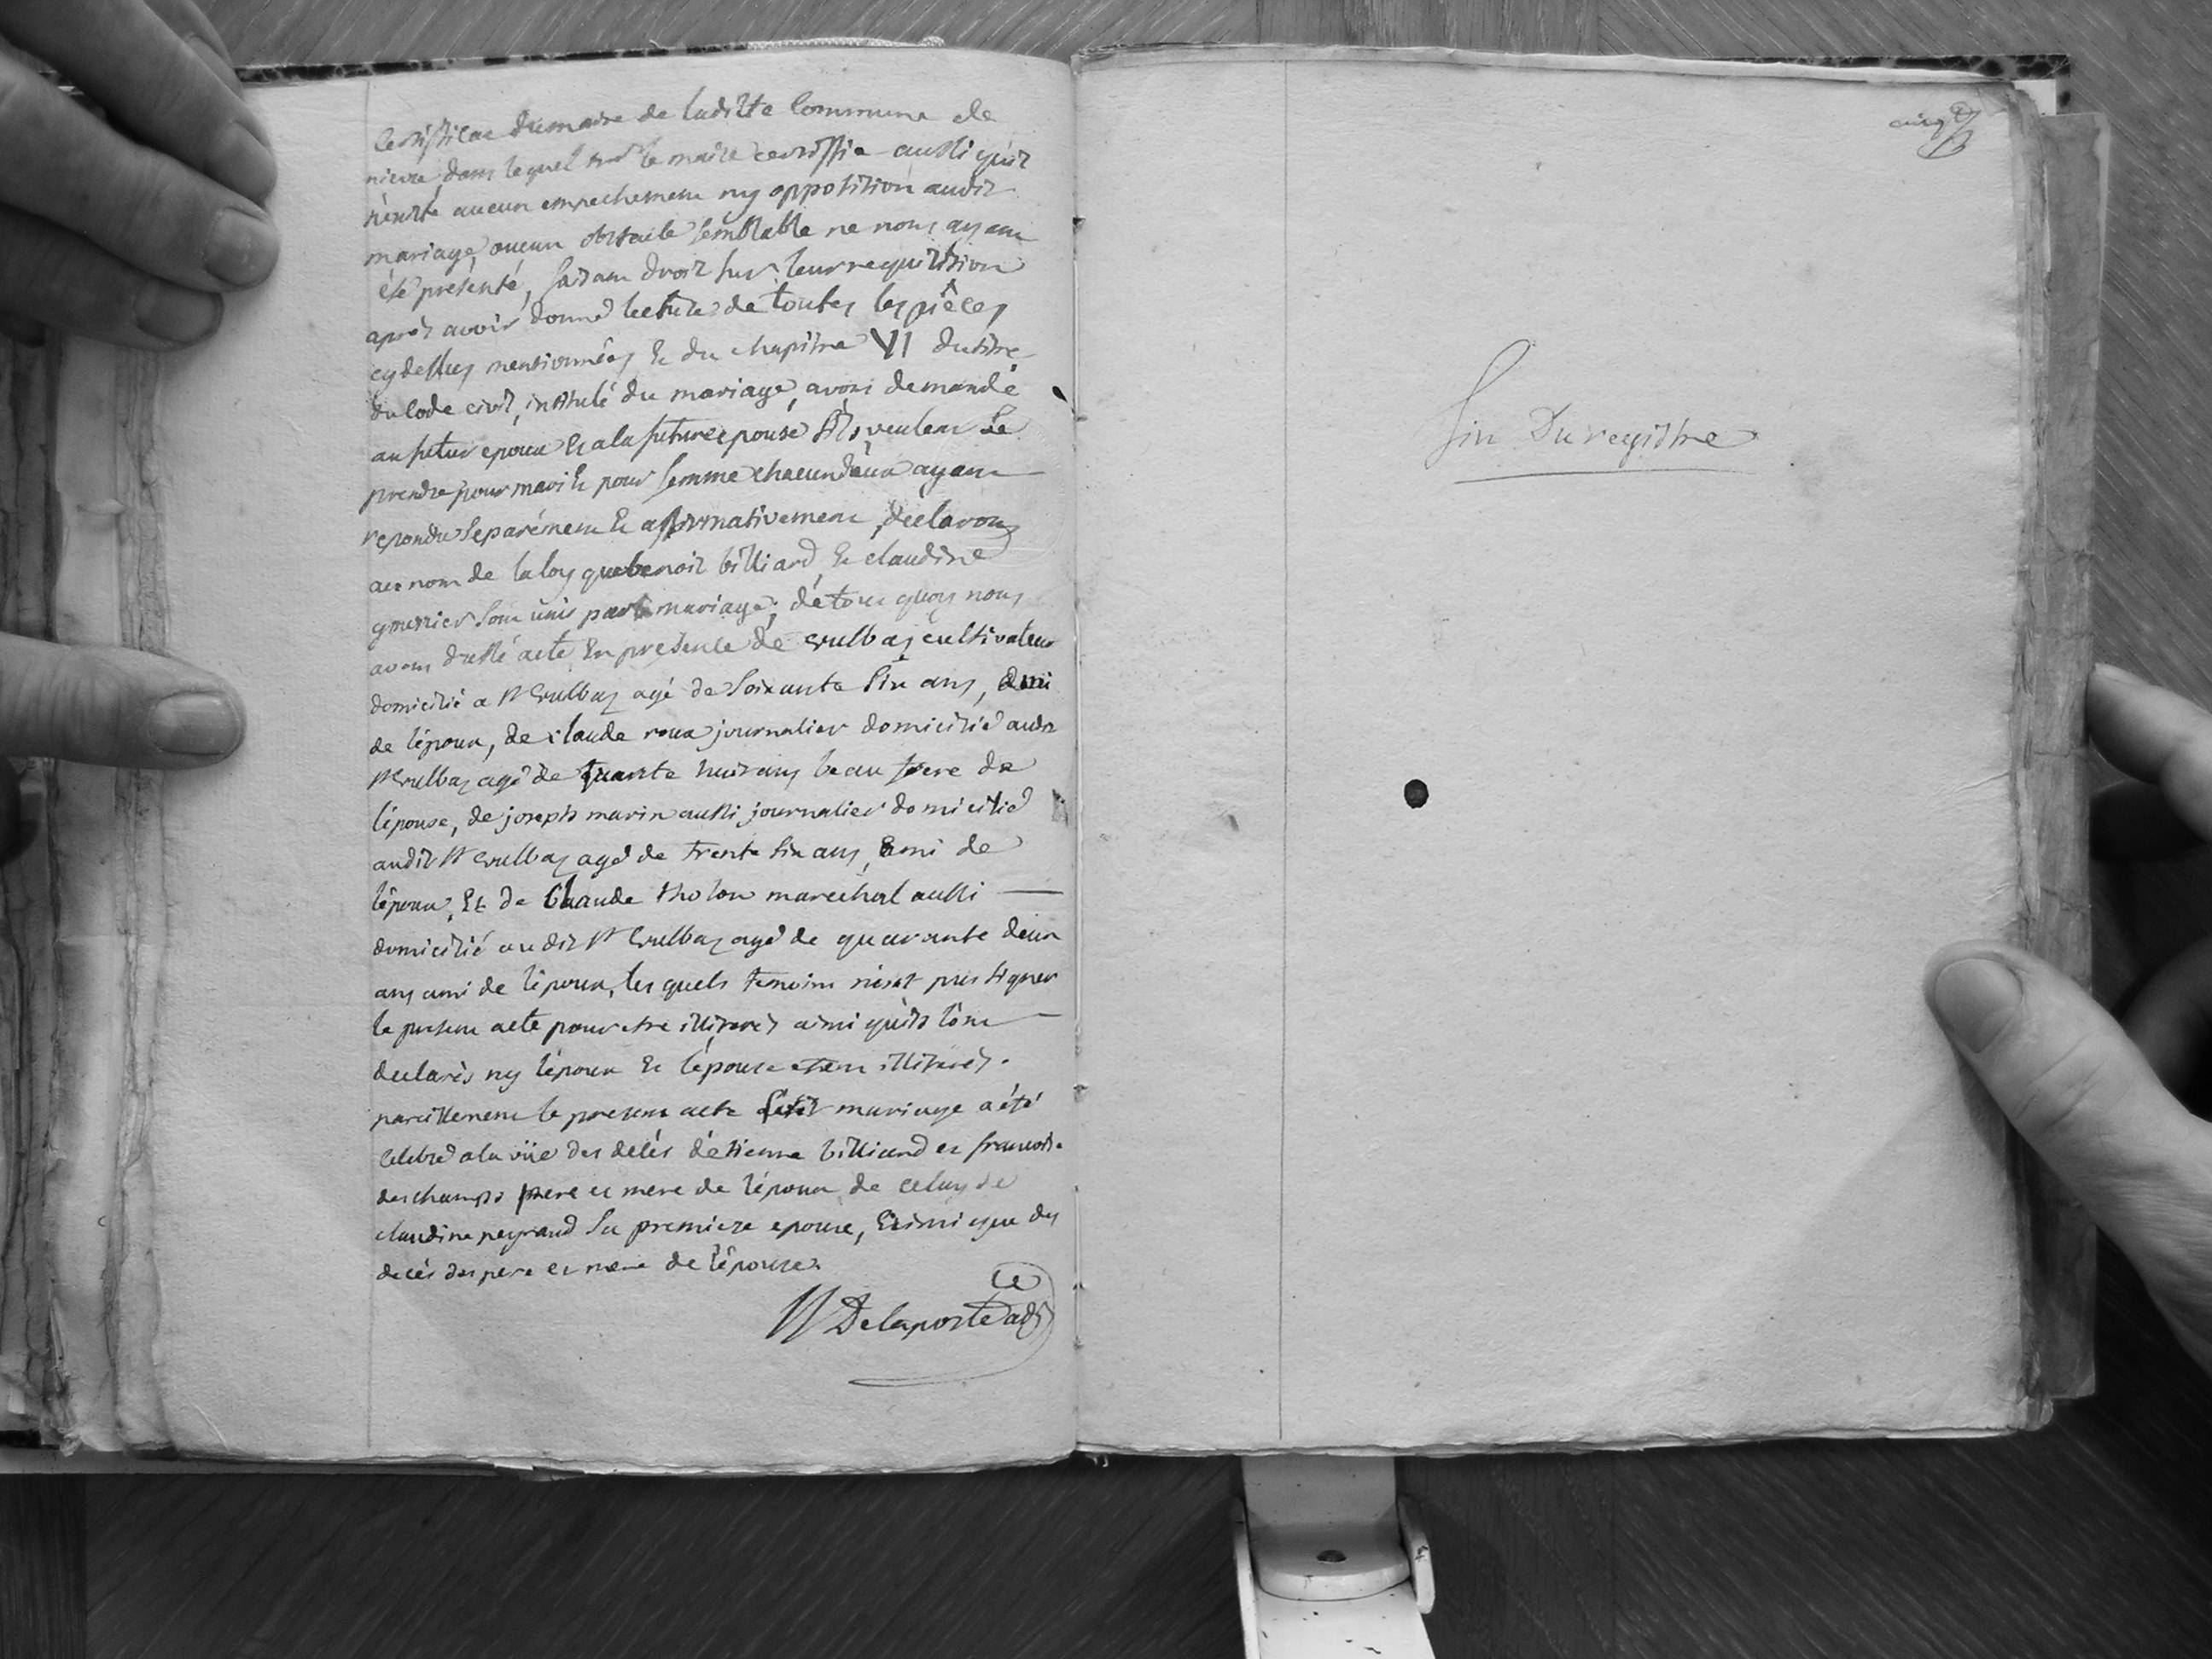 Certificat du maire de laditte Commune de
nievre, dans lequel le maire certiffie aussi qu'il
n'existe aucun empechement ny opposition audit
mariage, aucun obstacle semblable ne nous ayant
été présenté, faisant droit sur leur requisition
après avoir donné lecture de toutes les pièces
cy dessus mentionnées Et du chapitre VI du titre
du Code civil, intitulé du mariage, avons demandé
au futur epoux Et a la future epouse s'ils veulent Se
prendre pour mari Et pour femme chacun d'eux ayant
repondu Separément Et affirmativement, declarons
au nom de la loy que benoit billiard, Et claudine
sont unis par le mariage; de tous quoy nous
avons dressé acte En presence de cultivateur
domicilié a St agé de Soixante Six ans, ami
de l'époux, de claude roux journalier domicilié audit
St agé de huit ans beau frere de
l'épouse, de joseph marin aussi journalier domicilié
audit St agé de trente Six ans, ami de
l'époux, Et de Claude tholon marechal aussi
domicilié audit St agé de quarante deux
ans ami de l'époux, les quels temoins n'ont pas signer
le present acte pour etre illiterés ainsi qu'ils l'ont
declarés ny l'époux Et l'épouse etant illiterés.
pareillement le present acte Ledit mariage a été
celebré a la vüe des décés d'étienne billiard et francoise
deschamps pere et mere de l'époux de celuy de
claudine peyraud Sa premiere epouse, Et insi que des
decés des pere et mere de l'épouse.
Delaporte adj
cinq
fin Du registre